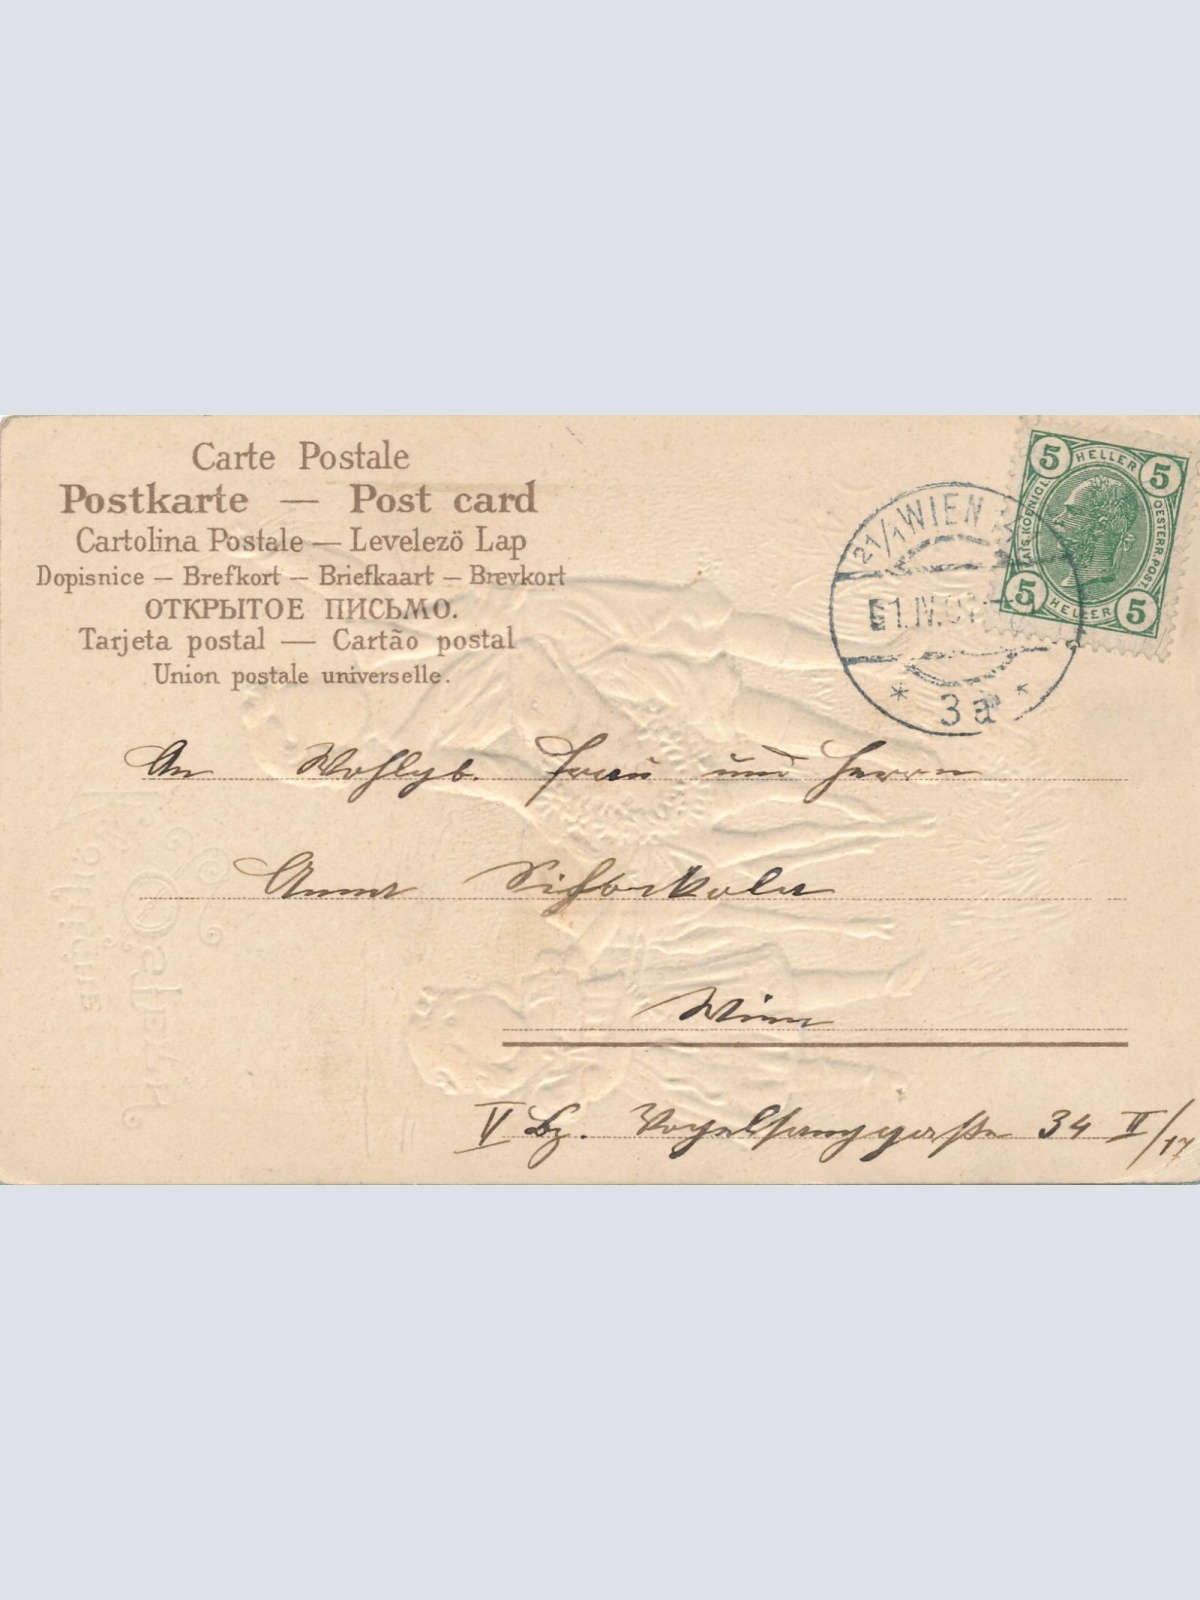 Carte Postale
Postkarte — Post card
Cartolina Postale — Levelezö Lap
Dopisnice — Brefkort — Briefkaart — Brevkort
ОТКРЫТОЕ ПИСЬМО.
Tarjeta postal — Cartão postal
Union postale universelle.
5 HELLER 5
KAIS. KOENIGL. OESTERR. POST.
5 HELLER 5
21/1 WIEN
1.IV.07
* 3a *
An Wohlgb. Frau und Herrn
Anna
Wien
V Bz. Vogelsanggasse 34 II/17